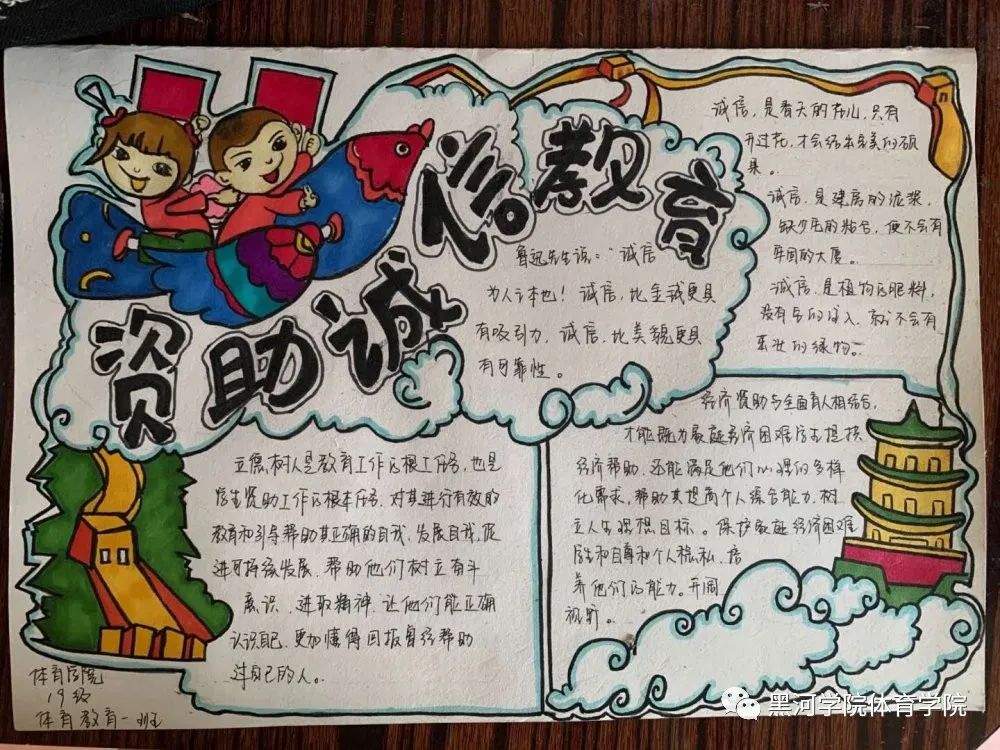 资助诚信教育
鲁迅先生说:“诚信
为人之本也!诚信,比金诚更具
有吸引力,诚信,比美貌更具
有可靠性。
诚信,是春天的花儿,只有
开过花,才会结出完美的硕
果。
诚信,是建房的泥浆,
缺少它的粘合,便不会有
牢固的大厦。
诚信,是植物的肥料,
没有它的注入,就不会有
茁壮的绿物。
立德树人是教育工作的根工任务,也是
学生资助工作的根本任务,对其进行有效的
教育和引导帮助其正确的自我,发展自我,促
进可持续发展,帮助他们树立奋斗
意识,进取精神,让他们能正确
认识自己,更加懂得回报曾经帮助
过自己的人。
经济资助与全面育人相结合,
才能既为家庭经济困难学生提供
经济帮助,还能满足他们心理的多样
化需求,帮助其提高个人综合能力,树
立人生理想目标。保护家庭经济困难
学生和自尊和个人隐私,培
养他们的能力。开阔
视野。
体育学院
19级
体育教育一班
黑河学院体育学院